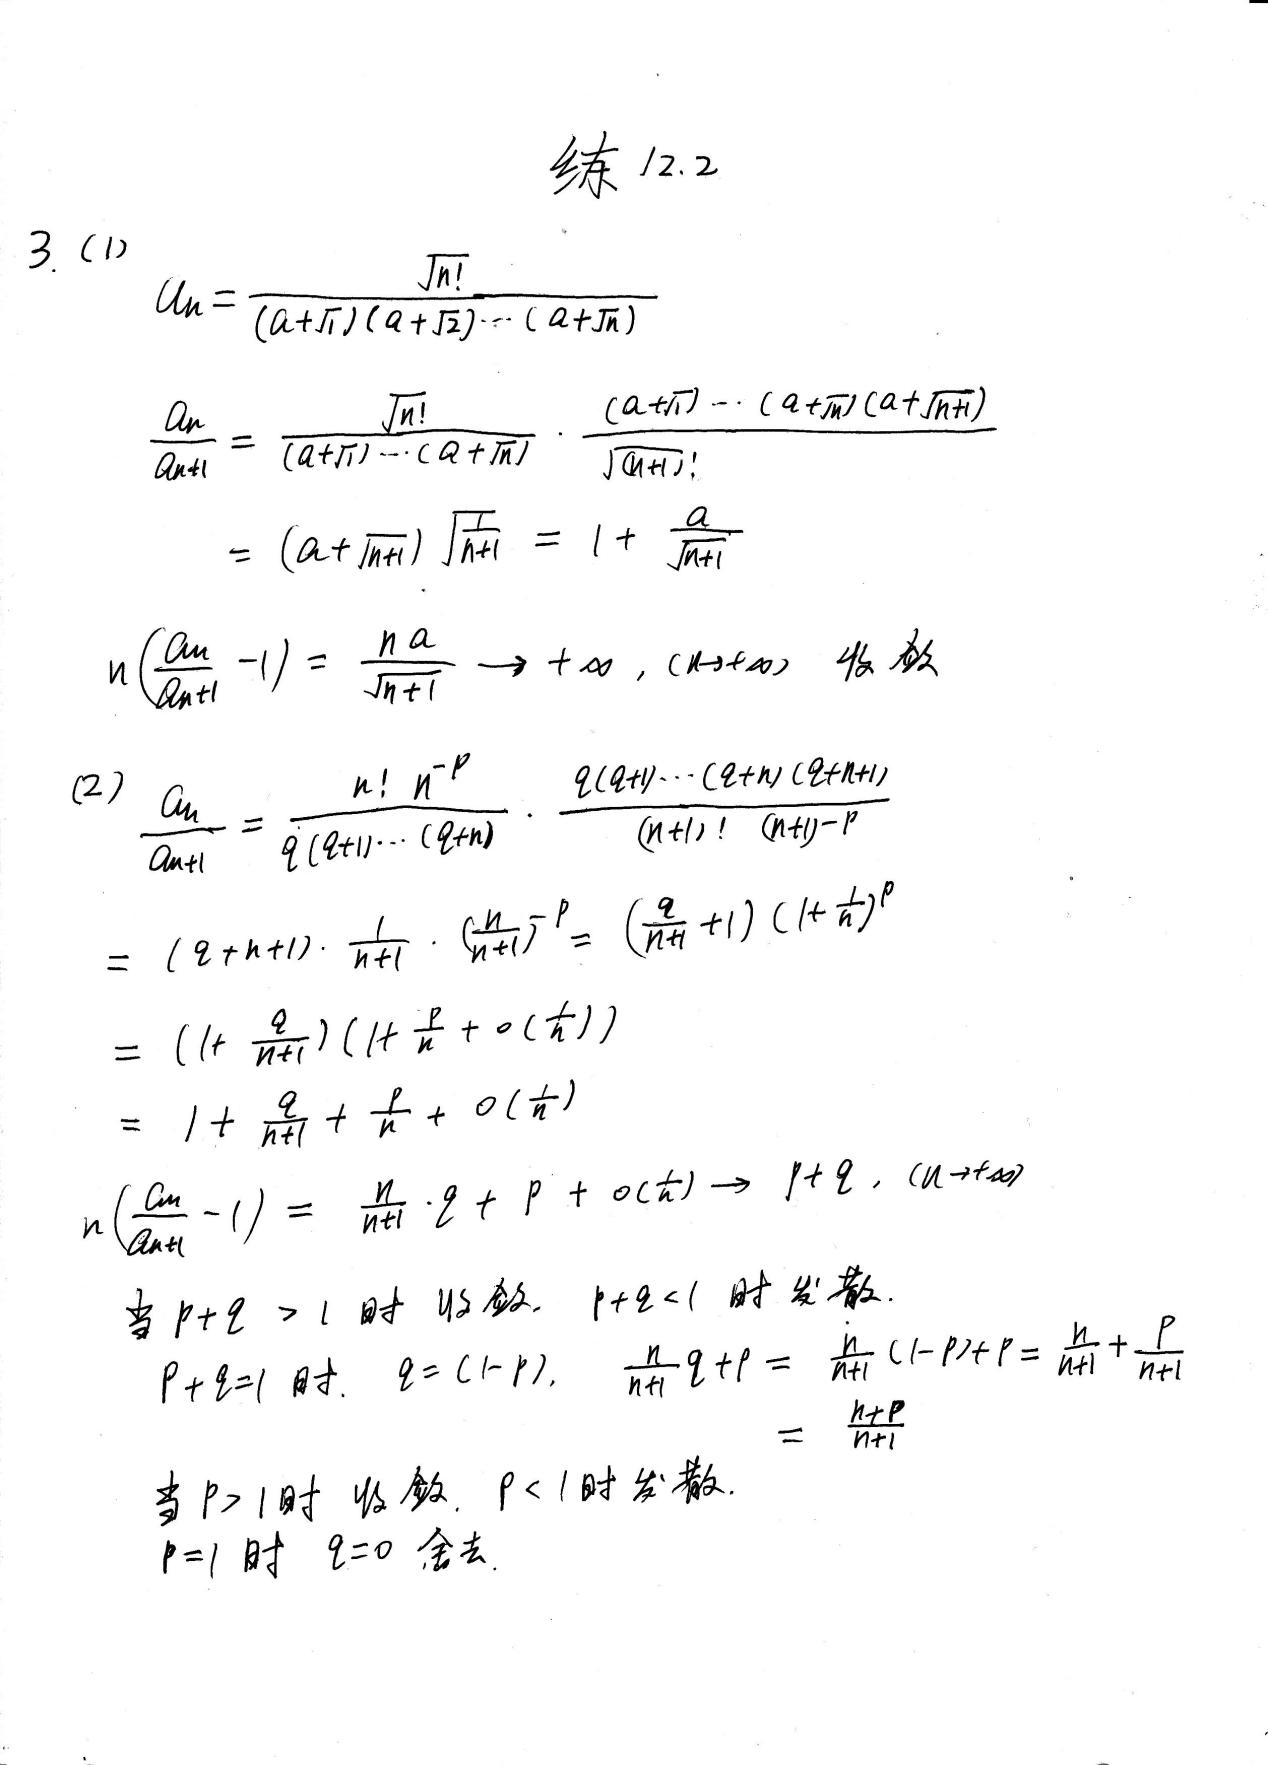 练 12.2
3. (1)
an = √n! / (a+√1)(a+√2)···(a+√n)
an/an+1 = √n! / (a+√1)···(a+√n) · (a+√1)···(a+√n)(a+√n+1) / √(n+1)!
= (a+√n+1) √1/n+1 = 1 + a/√n+1
n(an/an+1 -1) = na/√n+1 → +∞, (n→+∞) 收敛
(2) an/an+1 = n! n^-p / q(q+1)···(q+n) · q(q+1)···(q+n)(q+n+1) / (n+1)! (n+1)-p
= (q+n+1) · 1/n+1 · (n/n+1)^-p = (q/n+1 +1) (1+1/n)^p
= (1+ q/n+1)(1+ p/n + o(1/n))
= 1+ q/n+1 + p/n + o(1/n)
n(an/an+1 -1) = n/n+1 · q + p + o(1/n) → p+q, (n→+∞)
当 p+q > 1 时 收敛. p+q<1 时 发散.
p+q=1 时. q=(1-p), n/n+1 q+p = n/n+1 (1-p)+p = n/n+1 + p/n+1
= n+p/n+1
当 p>1时 收敛. p<1时 发散.
p=1时 q=0 舍去.